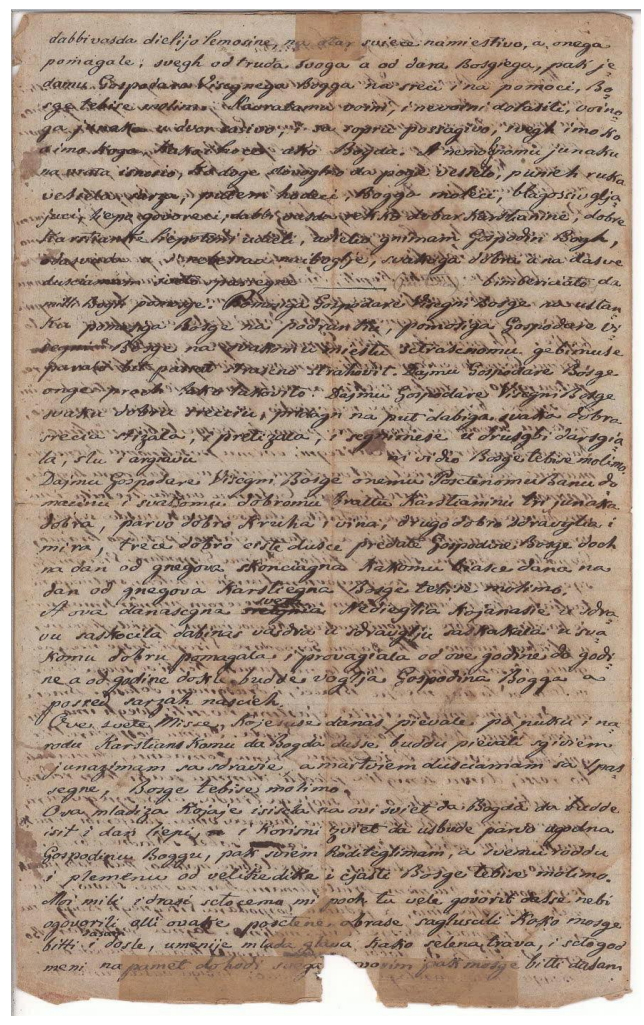 dabbi vasda dielijo lemosine, na oltar sviece namiestivo, a onega
pomagale; svegh od truda svoga a od dara Bosgiega, pak je
damu Gospodara Visegnega Bogga na sreci i na pomoci, Bo=
sge tebise molim. Navratamu voini, i nevorni dolasili, voino=
ga junaka u dvor zasivo, i sa soprii postagivo, svegh imo ko
aimo koga, Kakochoce ako Bogda. A nemochnomu junaku
na vrata isnosio, Kadoge dovoghio da pogje veselo, puneh ruka
vesela sarza, putem hodeci, Bogga moleci, blagosivglja
juci, liepo govoreci, dabbi vasda rekko dobar karstianine, dobre
Karstianke liepotoni udieli, udielio gnimam Gospodin Bogh,
odasvuda a nebesaa naiboglje, svakoga dobra a na dasve
dusciamam sveto spassegne bimbericiato da
milli Bogh pomoge. Pomozga Gospodare Visegni Bosge na ustan
ka pomozga Bosge na podranku, pomoziga Gospodare vi
segnii Bosge na svakomu miestu sctrascnomu, gebimuse
parvalo bit pamet strascno strahovit. Dajmu Gospodare Bosge
onge proch lako lakovito: Dajmu Gospodare Visegni Bosge
svaku dobru srecciu, prilagn na put dabiga svaka dobra
srecia stizala, i pretizala, i segnimese u drusgbi darsgia
la, slu i argiavu ni vidio Bosge tebise molimo,
Dajmu Gospodare Visegni Bosge onemu Poctenomu Banu do
macinu i svakomu dobromu Brattu Karstianinu tri junaka
dobra, parvo dobro Kruha i vina, drugo dobro sdravyglia i
mira, trece dobro ciste dusce predate Gospodine Bosge doch
na dan od gnegova skonciagna kakomu biasce dana na
dan od gnegova karstiegna Bosge tebise molimo,
A ova danascgna sveta Nedieglia kojanasie u sdra
vu saskocila dabinas vasda u sdravglju saskakala u sva
komu dobru pomagala i provagiala od ove godine do godi=
ne a od godine dokle budde voglja Gospodina Bogga a
posred sarzah nascieh.
Ove svete Misse, kojesuse danas pievale po puku i na=
rodu Karstianskomu da Bogda dusse buddu pievali sgiviem
junazimam sa sdravie, a martviem dusciamam sa spas=
segne, Bosge tebise molimo.
Ova mladiza kojaje isisela na ovi svjet da Bogda da budde
isit i dan liepi, i korisni zviet da usbude parvo ugodna
Gospodinu Boggu, pak sviem Roditeglimam, a svemu roddu
i plemenu od velike dike i ciasti Bosge tebise molimo.
Moi mili i drasi sctocemo mi poch tu vele govorit desse nebi
ogovorili alli onake poctene obrase saghuscali koko mosge
bitti i dosle, umenije mlada glava kako selena trava, i sctogod
meni na pamet dohodi svega govorim pak mosge bitti dasam